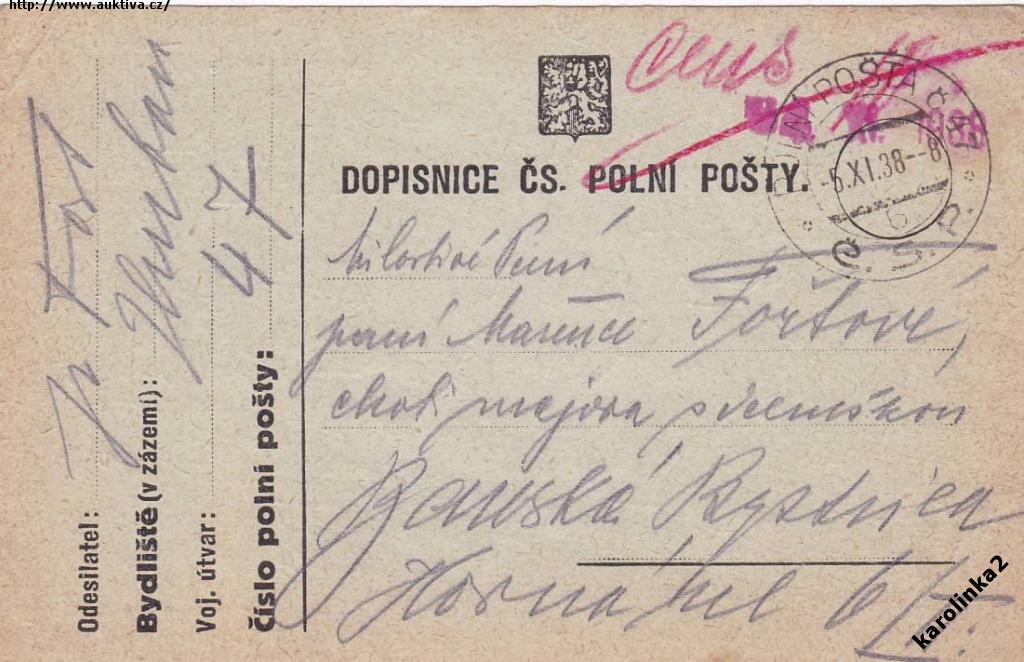 http://www.auktiva.cz/
cens
POLNÍ POŠTA 
5.XI.38--8
6
Č.S.P.
DOPISNICE ČS. POLNÍ POŠTY.
Milostivé Paní
paní Mařence Fořtové,
choti majora s vdemskou
Banská Bystrica
Horná ul 6
Odesilatel:
Fořt
Bydliště (v zázemí):
Voj. útvar:
Číslo polní pošty:
47
karolinka2